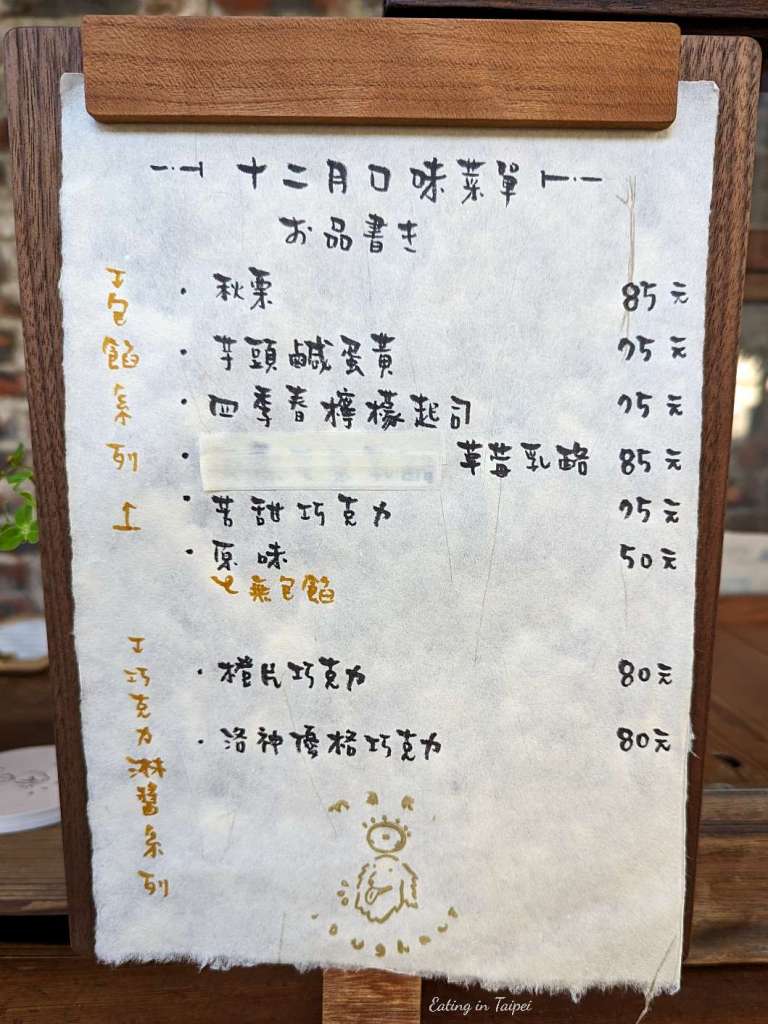 十二月口味菜單
お品書き
包餡系列
・秋栗 85元
・芋頭鹹蛋黃 75元
・四季春檸檬起司 75元
・草莓乳酪 85元
・苦甜巧克力 75元
・原味 50元
無包餡
巧克力淋醬系列
・橙片巧克力 80元
・洛神優格巧克力 80元
Eating in Taipei